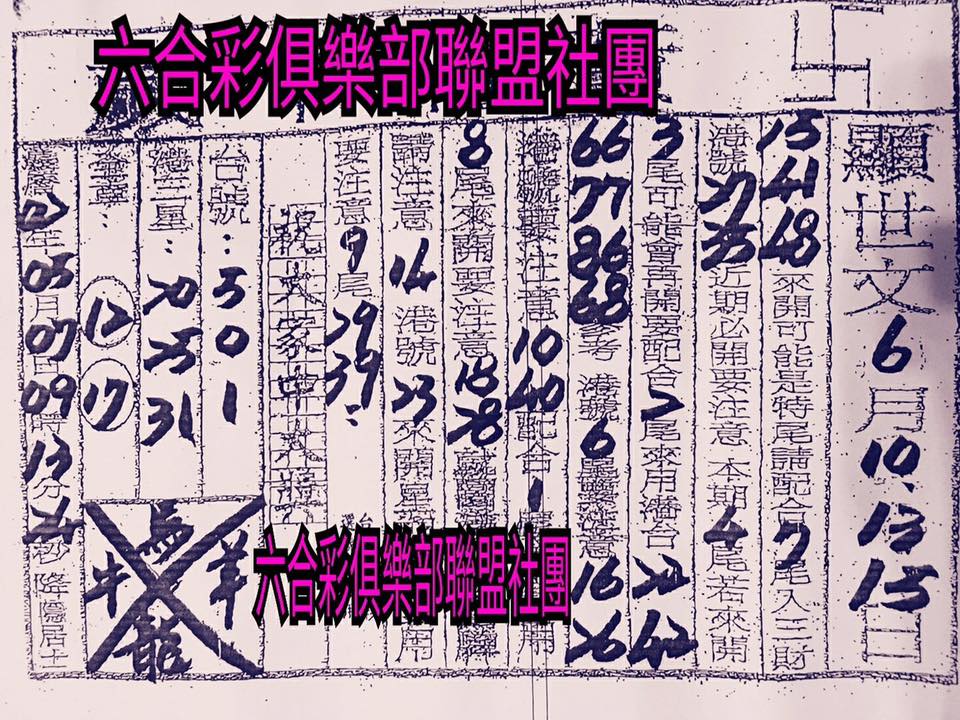 六合彩俱樂部聯盟社團
醒世文6月10.13 15日
15 41 48來開可能是特尾請配合7尾入三財
港號37 35近期必開要注意 本期4尾若來開
3尾可能會再開要配合7尾來用港台 42
66 77 86 68參考 港號6尾 注意16 26
港號要注意10 40配合1 用
8尾來開要注意18 28就
請注意14港號23來開 用
要注意9尾29 39.
祝大家中大獎
台號:501
港三星:20 25 31
12 17
虎 羊 牛 龍
年05月07日09時13分 秒 降隱居士
六合彩俱樂部聯盟社團